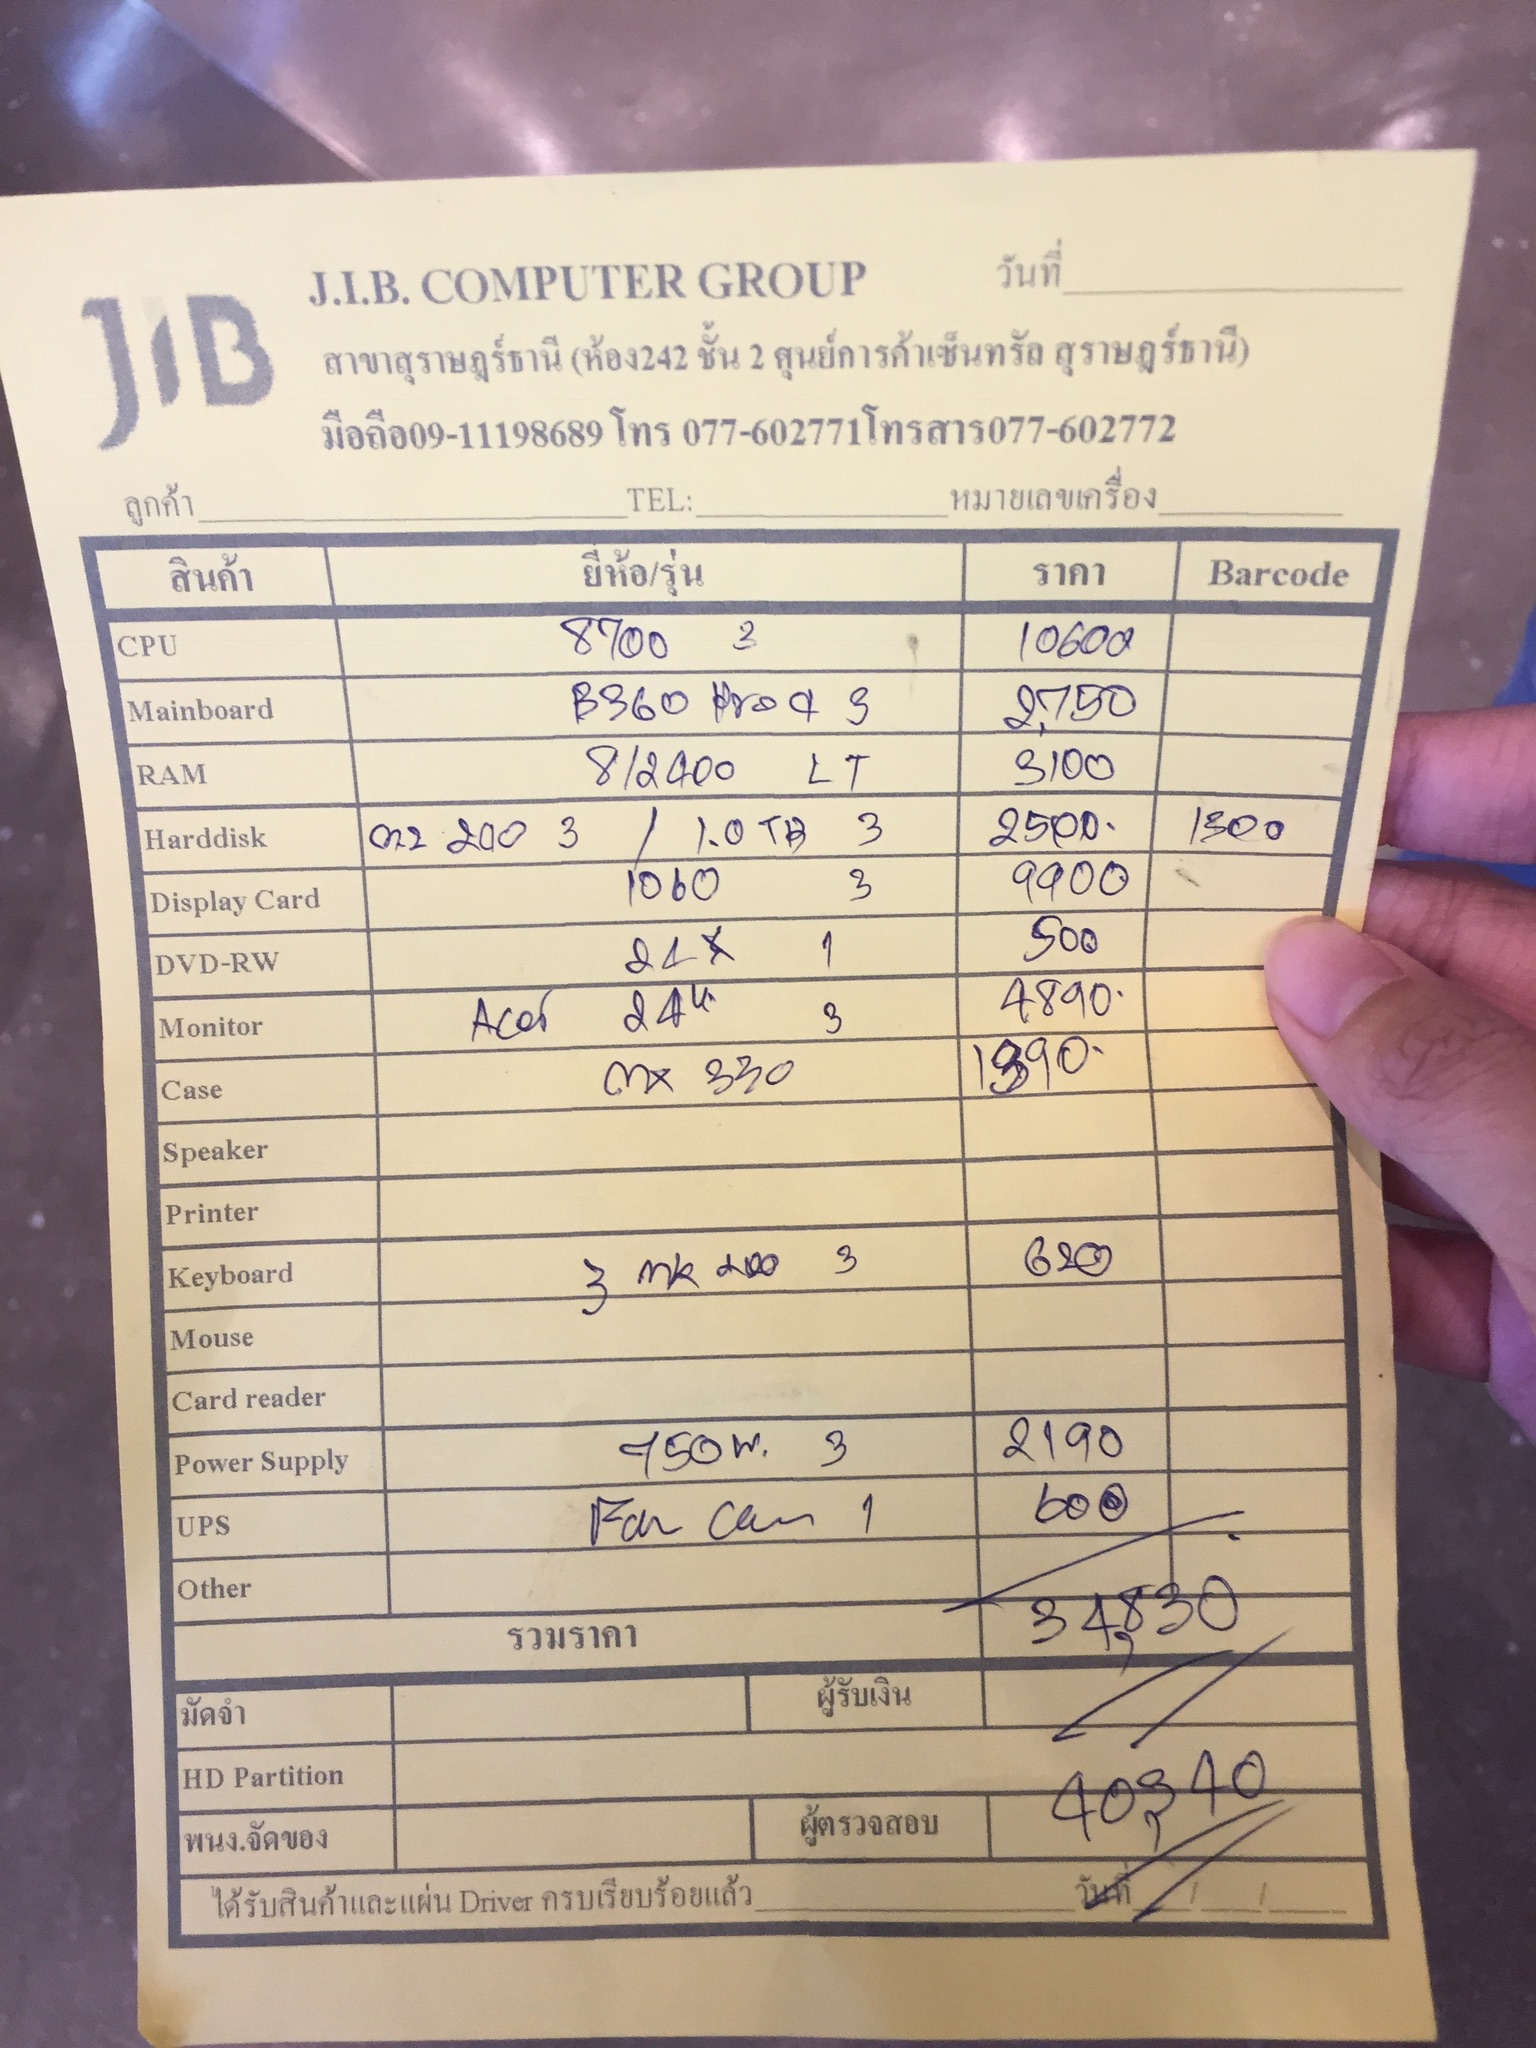 JIB
J.I.B. COMPUTER GROUP วันที่
สาขาสุราษฎร์ธานี (ห้อง242 ชั้น 2 ศูนย์การค้าเซ็นทรัล สุราษฎร์ธานี)
มือถือ09-11198689 โทร 077-602771โทรสาร077-602772
ลูกค้า TEL: หมายเลขเครื่อง
สินค้า ยี่ห้อ/รุ่น ราคา Barcode
CPU 8700 3 10600
Mainboard B360 3 2,750
RAM 8/2400 LT 3100
Harddisk 200 3 / 1.0 TB 3 2500. 1300
Display Card 1060 3 9900
DVD-RW 24X 1 500
Monitor Acer 24" 3 4890.
Case 330 1390.
Speaker
Printer
Keyboard MK 200 3 620
Mouse
Card reader
Power Supply 750 W. 3 2190
UPS Fan 1 600
Other
รวมราคา 34,830
มัดจำ ผู้รับเงิน
HD Partition 40,340
พนง.จัดของ ผู้ตรวจสอบ
ได้รับสินค้าและแผ่น Driver ครบเรียบร้อยแล้ว วันที่ / /